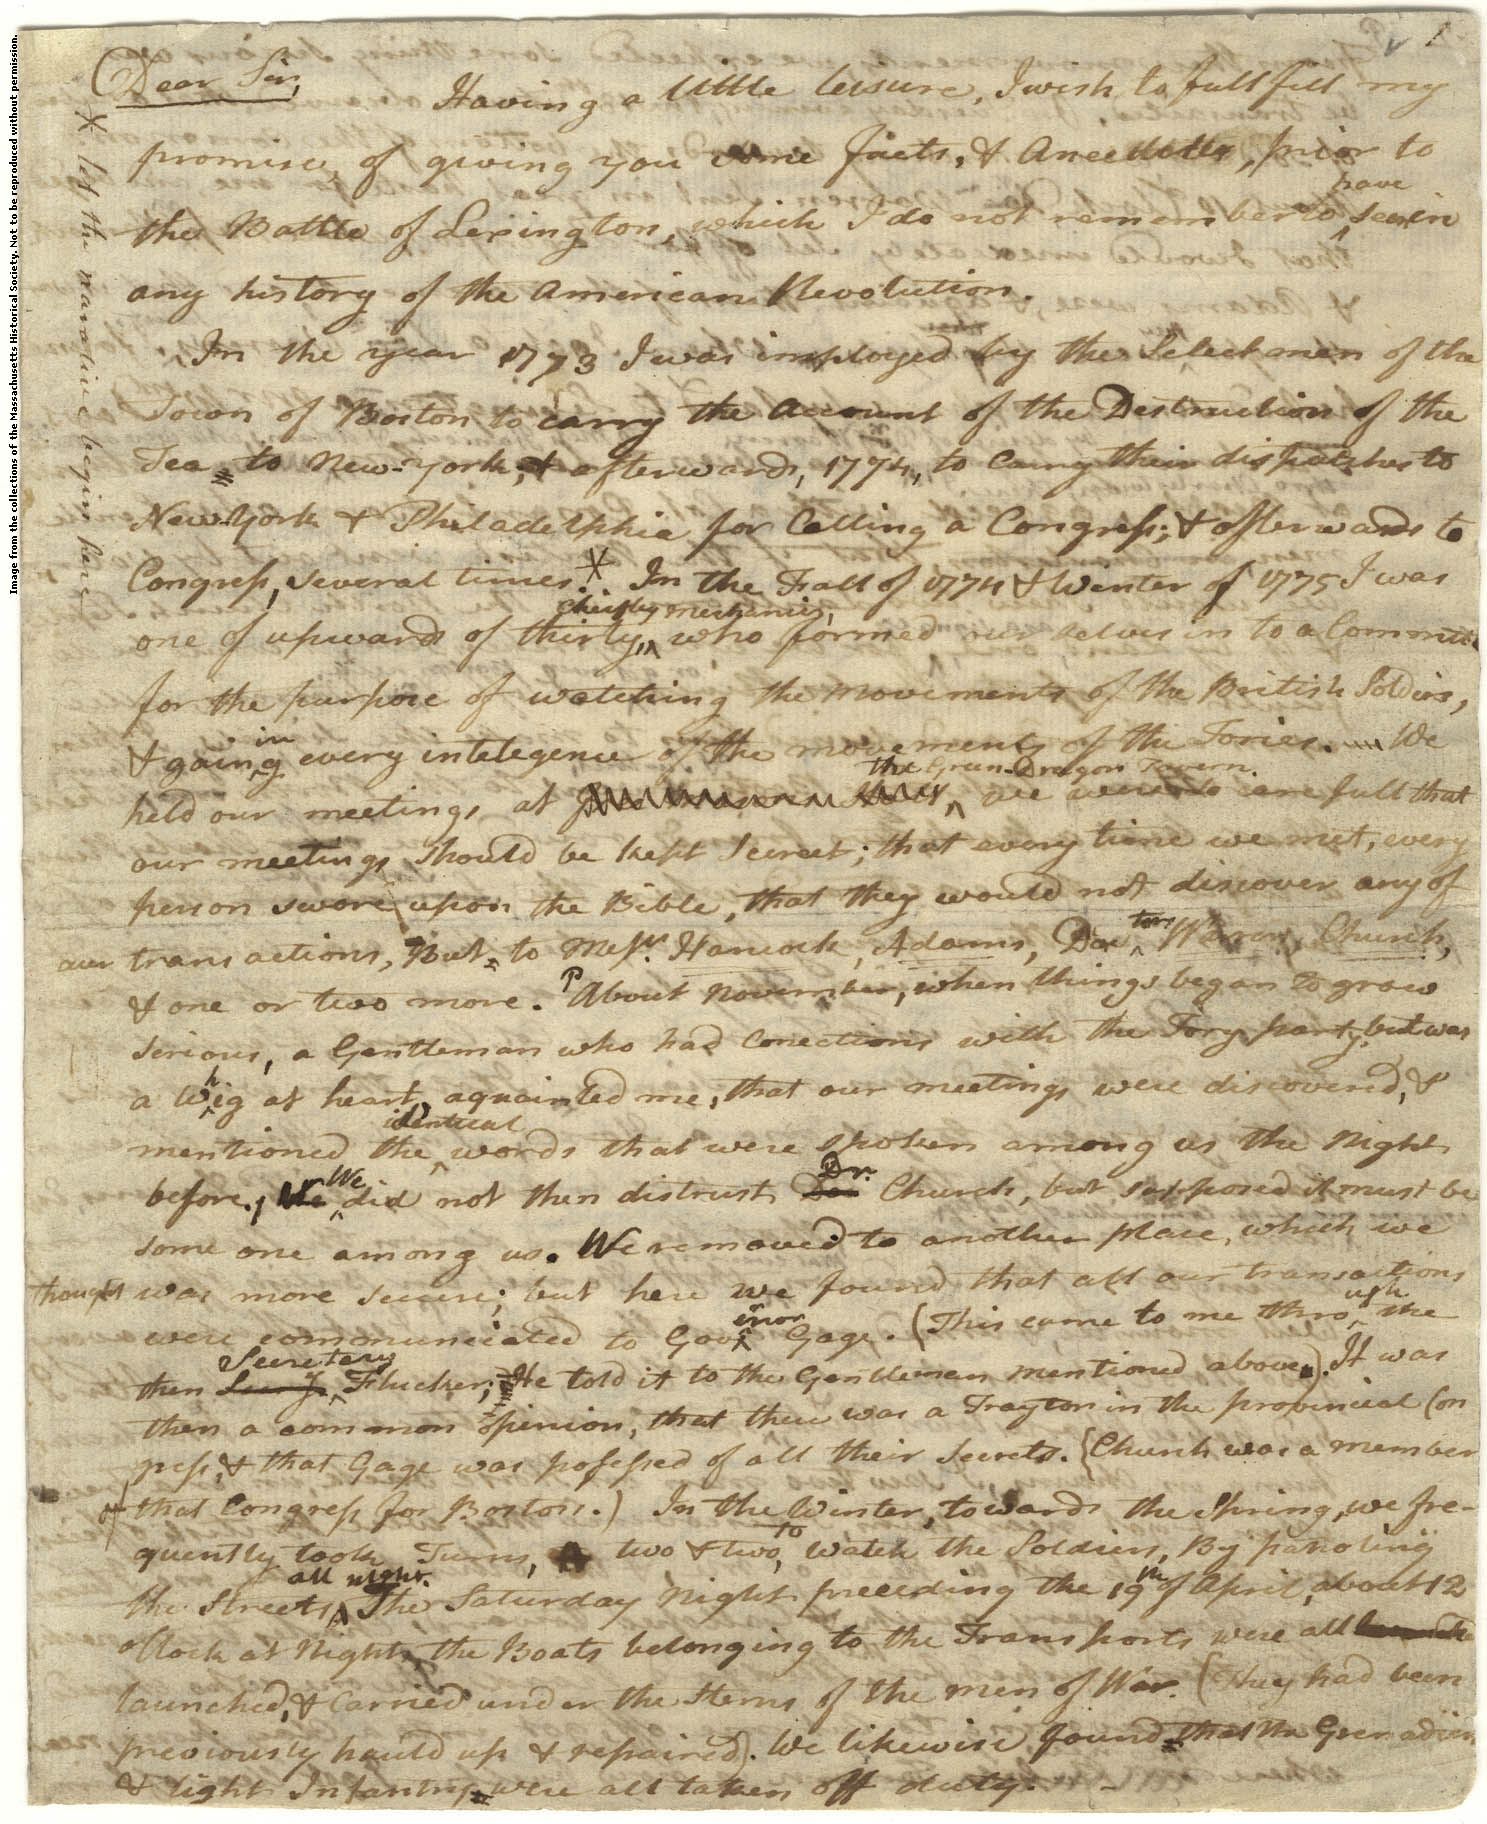 1
Dear Sir,
Having a little leisure, I wish to fullfill my
promise, of giving you some facts, & Anecdotes, prior to
the Battle of Lexington, which I do not remember to have seen in
any history of the American Revolution.
In the year 1773 I was imployed by the Selectmen of the
Town of Boston to carry the Account of the Destruction of the
Tea to New-York; & afterwards, 1774, to Carry their dispatches to
New-York & Philadelphia for Calling a Congress; & afterwards to
Congress, several times.* In the Fall of 1774 & Winter of 1775 I was
one of upwards of thirty, chiefly mechanics, who formed our selves in to a Committe
for the purpose of watching the Movements of the British Soldiers,
& gaining every intelegence of the movements of the Tories. We
held our meetings at the Green-Dragon Tavern. we were so carefull that
our meetings should be kept Secret; that every time we met, every
person swore upon the Bible, that they would not discover any of
our transactions, But to Messrs. Hancock, Adams, Doctors Warren, Church,
& one or two more. About November, when things began to grow
serious, a Gentleman who had Conections with the Tory party, but was
a Whig at heart, aquainted me, that our meetings were discovered, &
mentioned the identical words that were spoken among us the Night
before. We did not then distrust Dr. Church, but supposed it must be
some one among us. We removed to another place, which we
thought was more secure; but here we found that all our transactions
were communicated to Governor Gage. (This came to me through the
then Secretary Flucker; He told it to the Gentleman mentioned above). It was
then a common opinion, that there was a Traytor in the provincial Con
gress, & that Gage was posessed of all their Secrets. (Church was a member
of that Congress for Boston.) In the Winter, towards the Spring, we fre-
quently took Turns, two & two, to watch the Soldiers, By patroling
the Streets all night. The Saturday Night preceding the 19th of April, about 12
oClock at Night, the Boats belonging to the Transports were all
launched, & carried under the Sterns of the men of War. (They had been
previously hauld up & repaired). We likewise found that the Grenadiers
& light Infantry were all taken off duty.
* let the narative begin here
Image from the collections of the Massachusetts Historical Society. Not to be reproduced without permission.